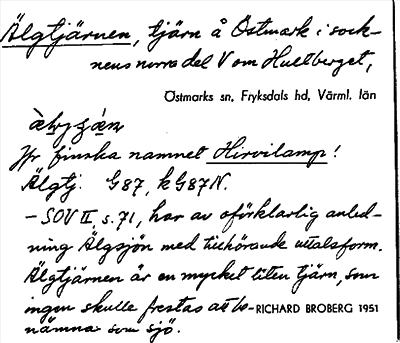 Älgtjärnen, tjärn å Östmark i sock-
nens norra del V om Hultberget,
Östmarks sn, Fryksdals hd, Värml. län
Jfr finska namnet Hirvilamp!
Älgtj. G87, kG87N.
- SOV II, s. 71, har av oförklarlig anled-
ning Älgsjön med tillhörande uttalsform.
Älgtjärnen är en mycket liten tjärn, som
ingen skulle frestas att be- RICHARD BROBERG 1951
nämna som sjö.